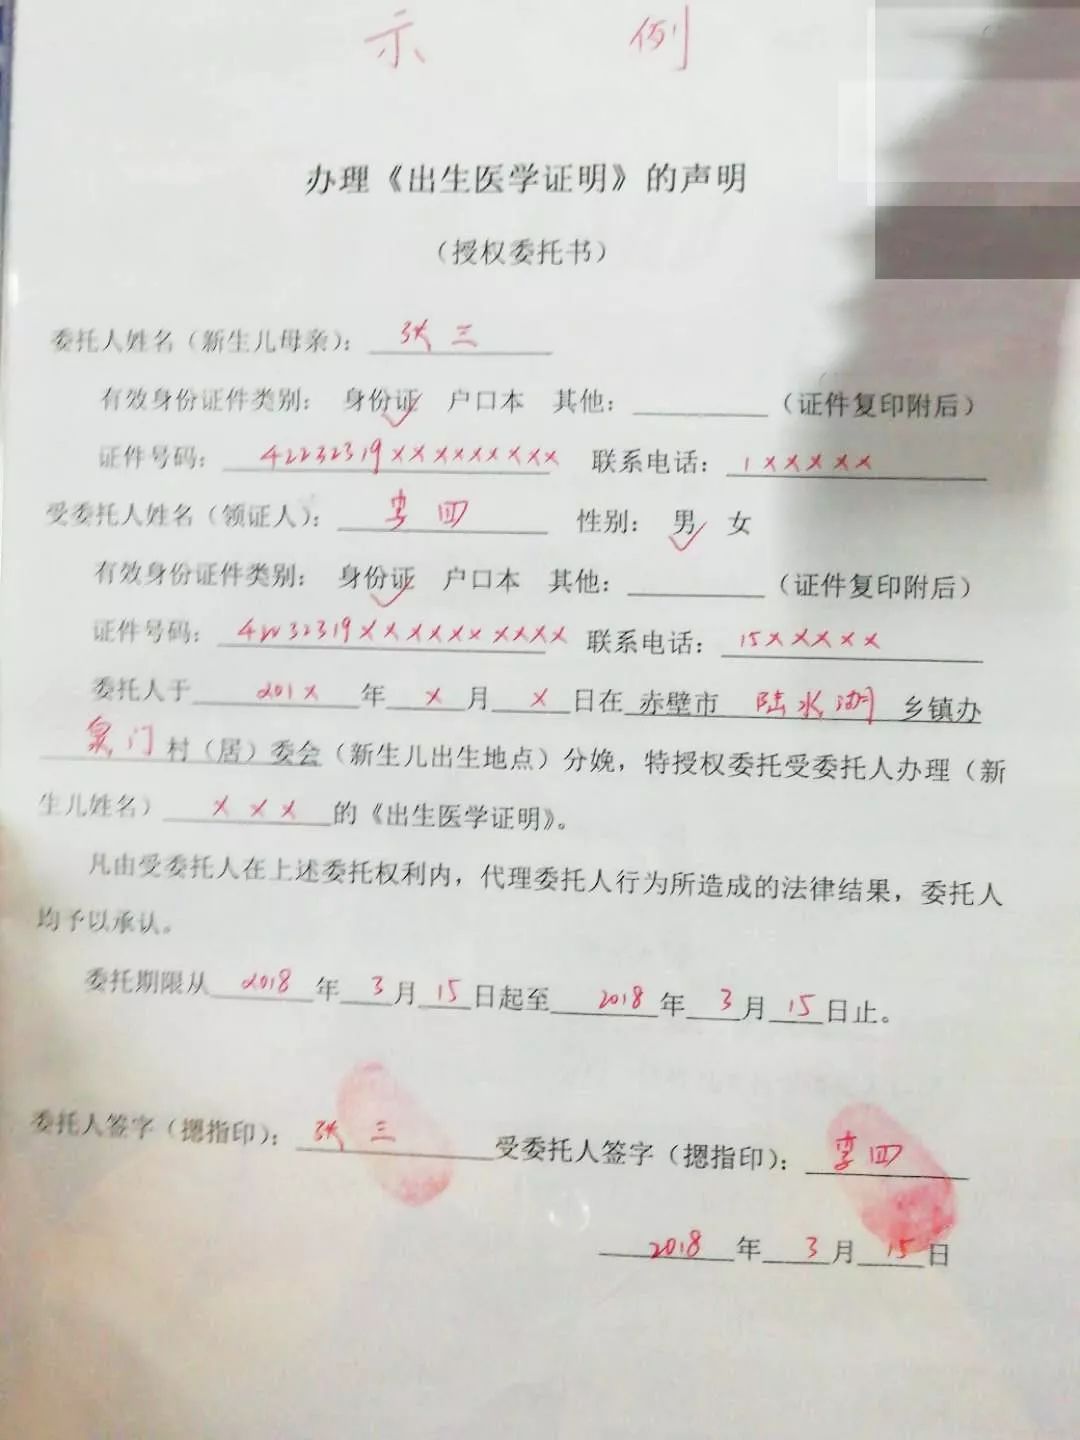 示 例
办理《出生医学证明》的声明
（授权委托书）
委托人姓名（新生儿母亲）： 张三
有效身份证件类别： 身份证 户口本 其他： （证件复印附后）
证件号码： 42232319×××××××× 联系电话： 1×××××
受委托人姓名（领证人）： 李四 性别： 男 女
有效身份证件类别： 身份证 户口本 其他： （证件复印附后）
证件号码： 42232319×××××××××× 联系电话： 15×××××
委托人于 201× 年 × 月 × 日在 赤壁市 陆水湖 乡镇办
泉门 村（居）委会（新生儿出生地点）分娩，特授权委托受委托人办理（新
生儿姓名） ××× 的《出生医学证明》。
凡由受委托人在上述委托权利内，代理委托人行为所造成的法律结果，委托人
均予以承认。
委托期限从 2018 年 3 月 15 日起至 2018 年 3 月 15 日止。
委托人签字（摁指印）： 张三 受委托人签字（摁指印）： 李四
2018 年 3 月 15 日